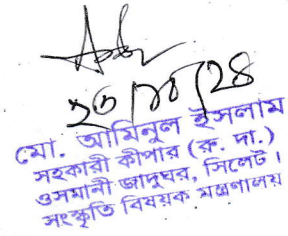 ২৩/১০/২৪
মো. আমিনুল ইসলাম
সহকারী কীপার (রু. দা.)
ওসমানী জাদুঘর, সিলেট।
সংস্কৃতি বিষয়ক মন্ত্রণালয়